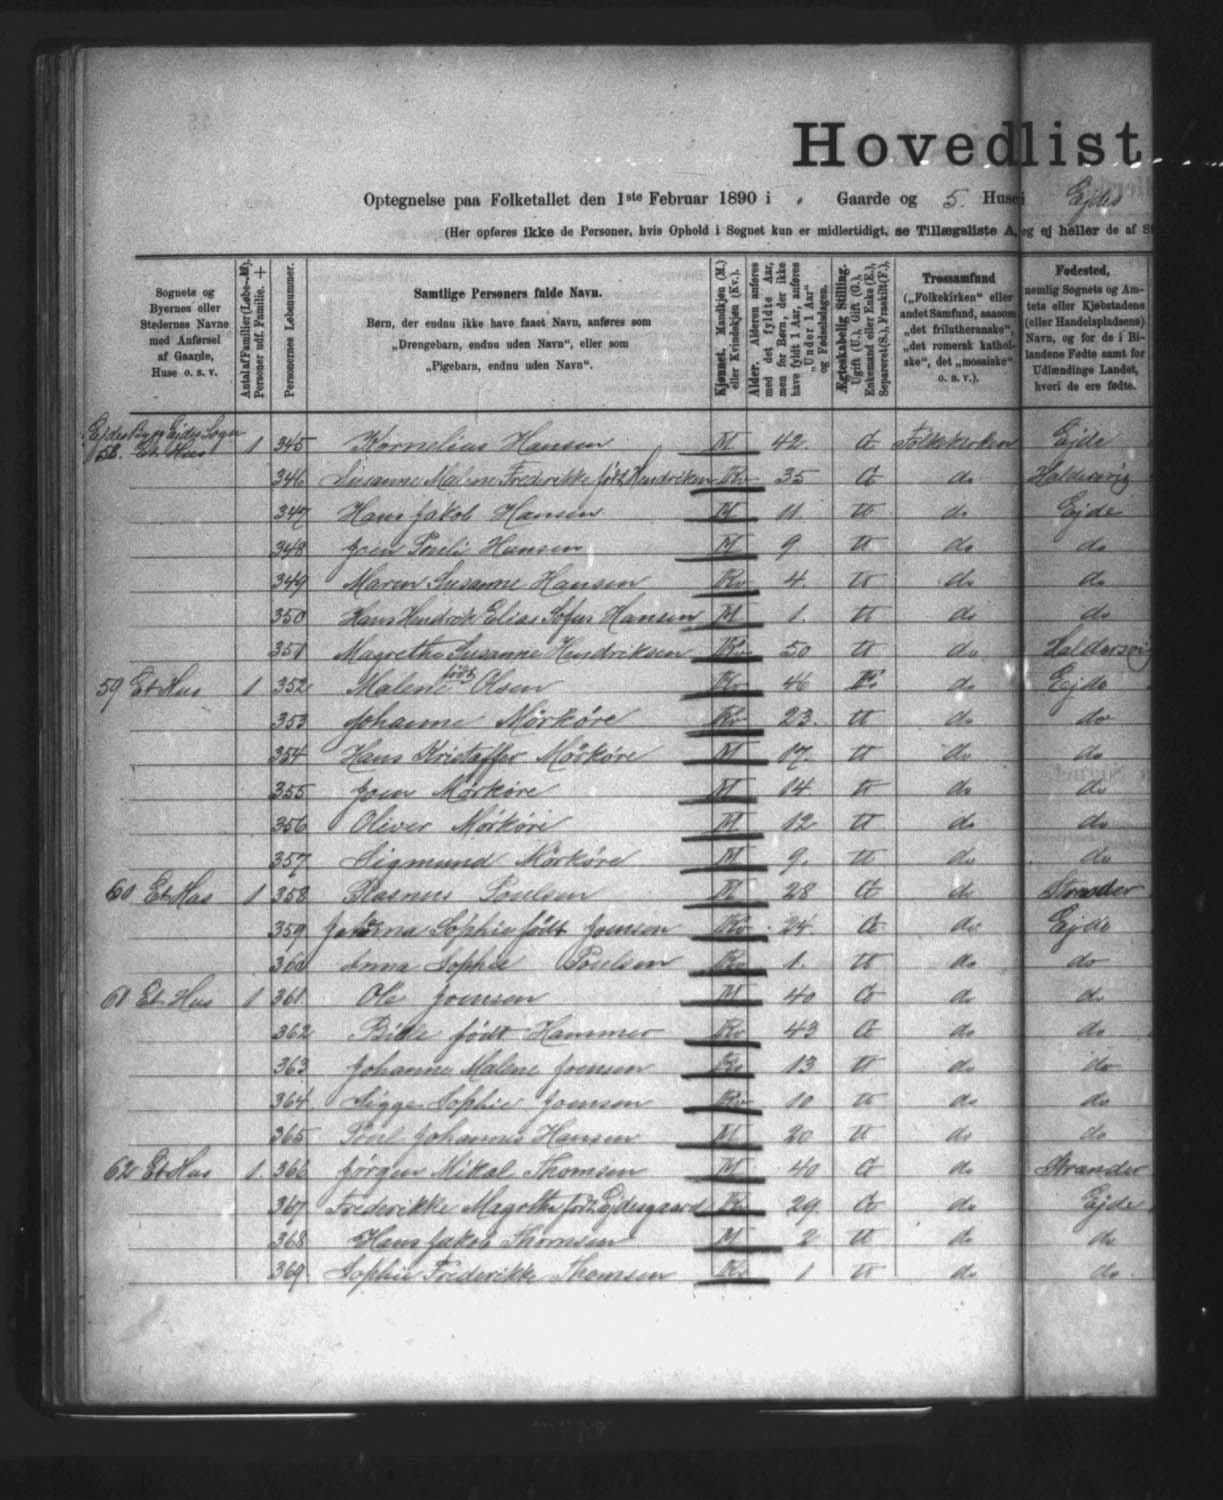 Hovedlist
Optegnelse paa Folketallet den 1ste Februar 1890 i „ Gaarde og 5. Huse i Ejde
(Her opføres ikke de Personer, hvis Ophold i Sognet kun er midlertidigt, se Tillægsliste A, og ej heller de af S
Sognets og Byernes eller Stedernes Navne med Anførsel af Gaarde, Huse o. s. v.
Antal af Familier (Løbe-№). Personer udf. Familie. +
Personernes Løbenummer.
Samtlige Personers fulde Navn.
Børn, der endnu ikke have faaet Navn, anføres som
„Drengebarn, endnu uden Navn“, eller som
„Pigebarn, endnu uden Navn“.
Kjønnet. Mandkjøn (M.) eller Kvindekjøn (Kv.).
Alder. Alderen anføres med det fyldte Aar, men for Børn, der ikke have fyldt 1 Aar, anføres „Under 1 Aar“ og Fødselsdagen.
Ægteskabelig Stilling. Ugift (U.), Gift (G.), Enkemand eller Enke (E.), Separeret (S.), Fraskilt (F.).
Trossamfund („Folkekirken“ eller andet Samfund, saasom „det frilutheranske“, „det romersk katholske“, det „mosaiske“ o. s. v.).
Fødested, nemlig Sognets og Amtets eller Kjøbstadens (eller Handelspladsens) Navn, og for de i Bilandene Fødte samt for Udlændinge Landet, hveri de ere fødte.
Ejde By, Ejde Sogn
58. Et Hus 1 345 Kornelius Hansen M 42. G Folkekirken Ejde
346 Susanne Malene Frederikke født Hendriksen Kv 35 G do Haldersvig
347 Hans Jakob Hansen M 11. U do Ejde
348 Joen Pouli Hansen M 9 U do do
349 Maren Susanne Hansen Kv 4. U do do
350 Hans Hendrik Elias Sofus Hansen M 1. U do do
351 Magrethe Susanne Hendriksen Kv 50 U do Haldersvig
59 Et Hus 1 352 Malene født Olsen Kv 46 E do Ejde
353 Johanne Mörköre Kv 23. U do do
354 Hans Kristaffer Mörköre M 17. U do do
355 Joen Mörköre M 14 U do do
356 Oliver Mörköre M 12 U do do
357 Sigmund Mörköre M 9. U do do
60 Et Hus 1 358 Rasmus Poulsen M 28 G do Strander
359 Sophie født Joensen Kv 24. G do Ejde
360 Anna Sophie Poulsen Kv 1. U do do
61 Et Hus 1 361 Ole Joensen M 40 G do do
362 født Hammer Kv 43 G do do
363 Johanne Malene Joensen Kv 13 U do do
364 Sigga Sophie Joensen Kv 10 U do do
365 Poul Johannes Hansen M 20 U do do
62 Et Hus 1. 366 Jørgen Mikal Thomsen M 40 G do Strander
367 Frederikke Magrethe født Ejdesgaard Kv 29. G do Ejde
368 Hans Jakob Thomsen M 2 U do do
369 Sophie Frederikke Thomsen Kv 1 U do do.